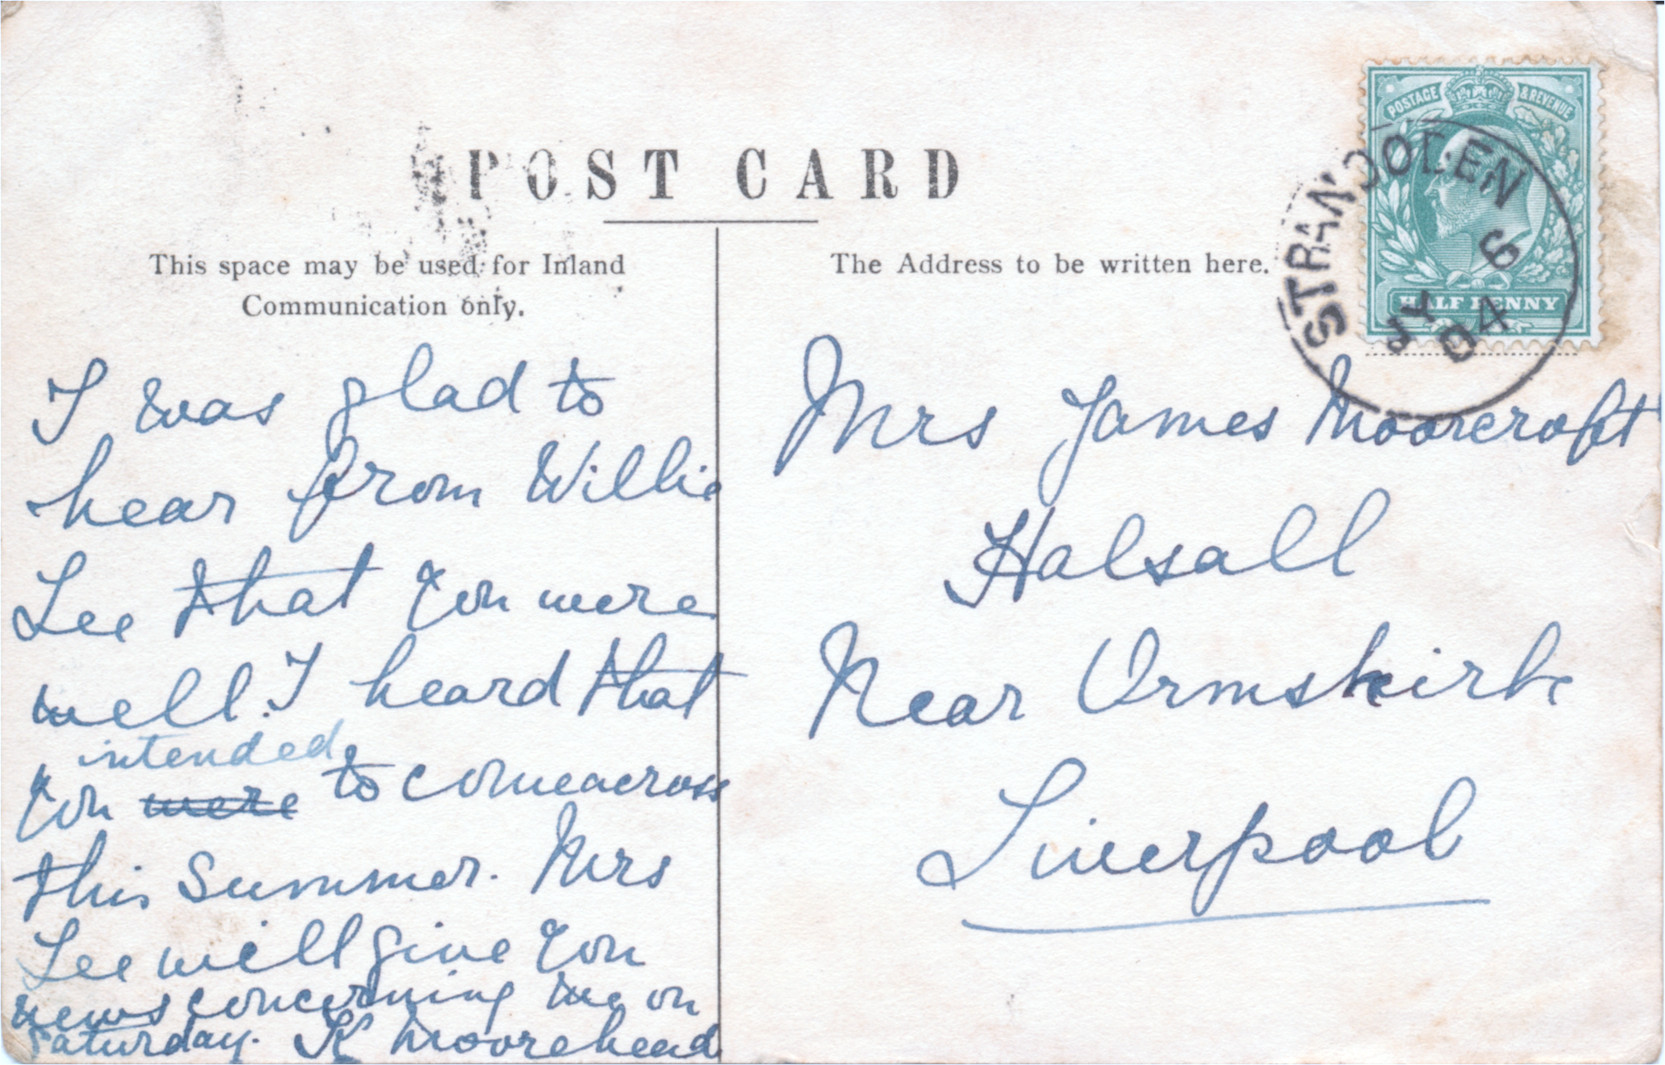 POST CARD
This space may be used for Inland
Communication only.
The Address to be written here.
POSTAGE & REVENUE
HALF PENNY
STRANOODEN
JY 6
04
I was glad to
hear from Willie
Lee that you were
well. I heard that
intended
you were to come across
this Summer. Mrs
Lee will give you
news concerning me on
Saturday. K Moorehead
Mrs James Moorcroft
Halsall
Near Ormskirk
Liverpool